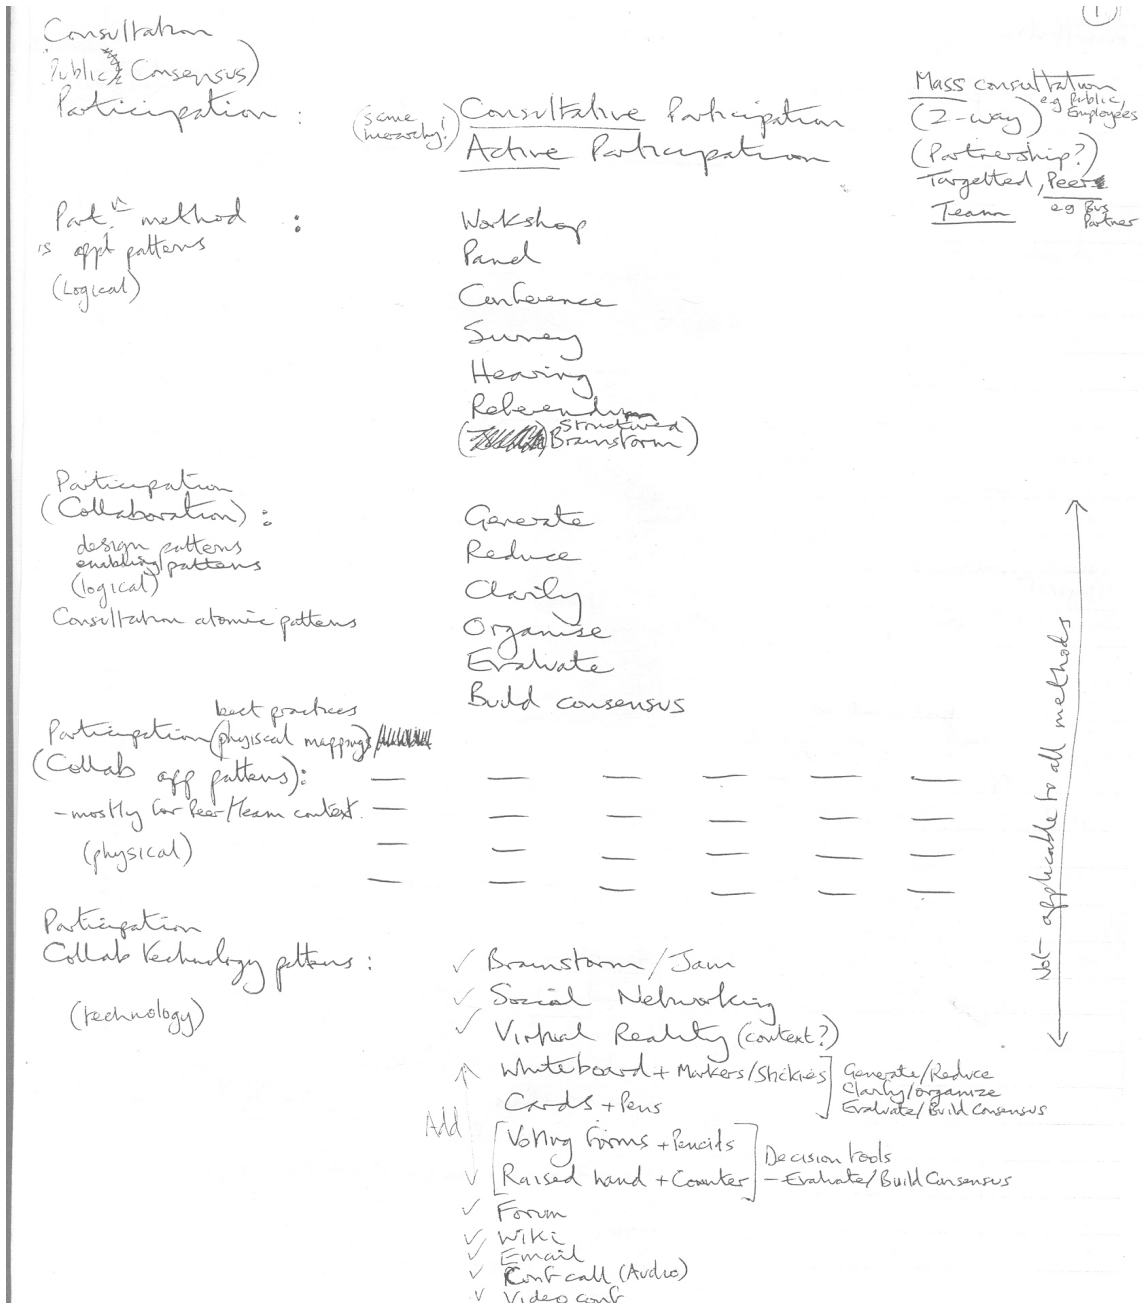 1
Consultation
Public, Consensus)
Participation :
(same hierarchy!)
Consultative Participation
Active Participation
Mass consultation
e.g Public, Employees
(2-way)
(Partnership?)
Targetted, Peer
Team
eg Bus Partner
Part.n method :
is appt patterns
(Logical)
Workshop
Panel
Conference
Survey
Hearing
Referendum
(Structured Brainstorm)
Participation
(Collaboration) :
design patterns
enabling patterns
(logical)
Consultation atomic patterns
Generate
Reduce
Clarify
Organise
Evaluate
Build consensus
best practices
Participation (physical mappings)
(Collab app patterns):
- mostly for Peer/Team context.
(physical)
Not applicable to all methods
Participation
Collab technology patterns :
(technology)
✓ Brainstorm/Jam
✓ Social Networking
✓ Virtual Reality (context?)
Whiteboard + Markers/Stickies
Cards + Pens
Generate/Reduce
Clarify/organize
Evaluate/Build Consensus
Add
Voting forms + Pencils
Raised hand + Counter
Decision tools
- Evaluate/Build Consensus
✓ Forum
✓ Wiki
✓ Email
✓ Conf call (Audio)
✓ Video conf